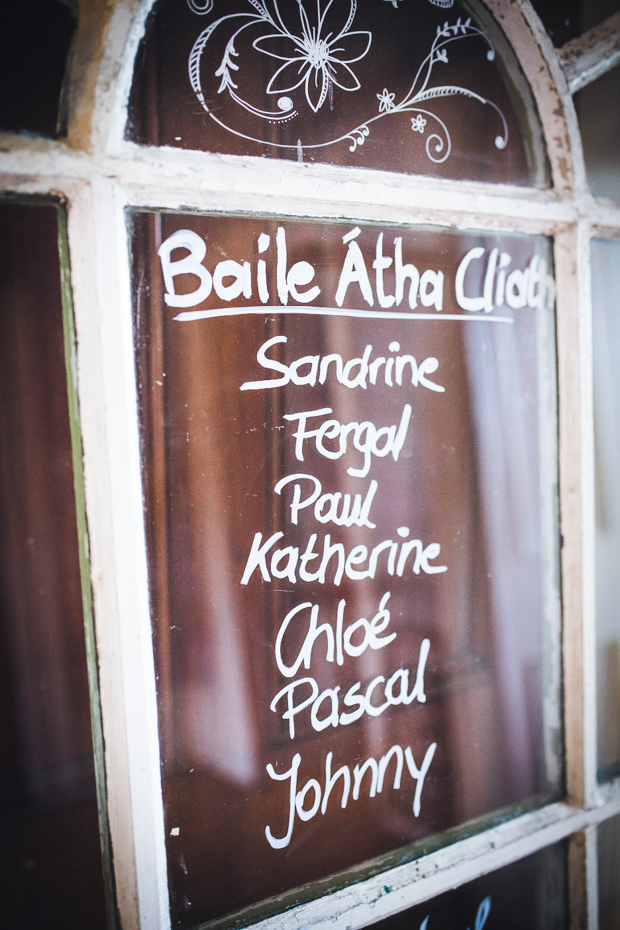 Baile Átha Cliath
Sandrine
Fergal
Paul
Katherine
Chloé
Pascal
Johnny